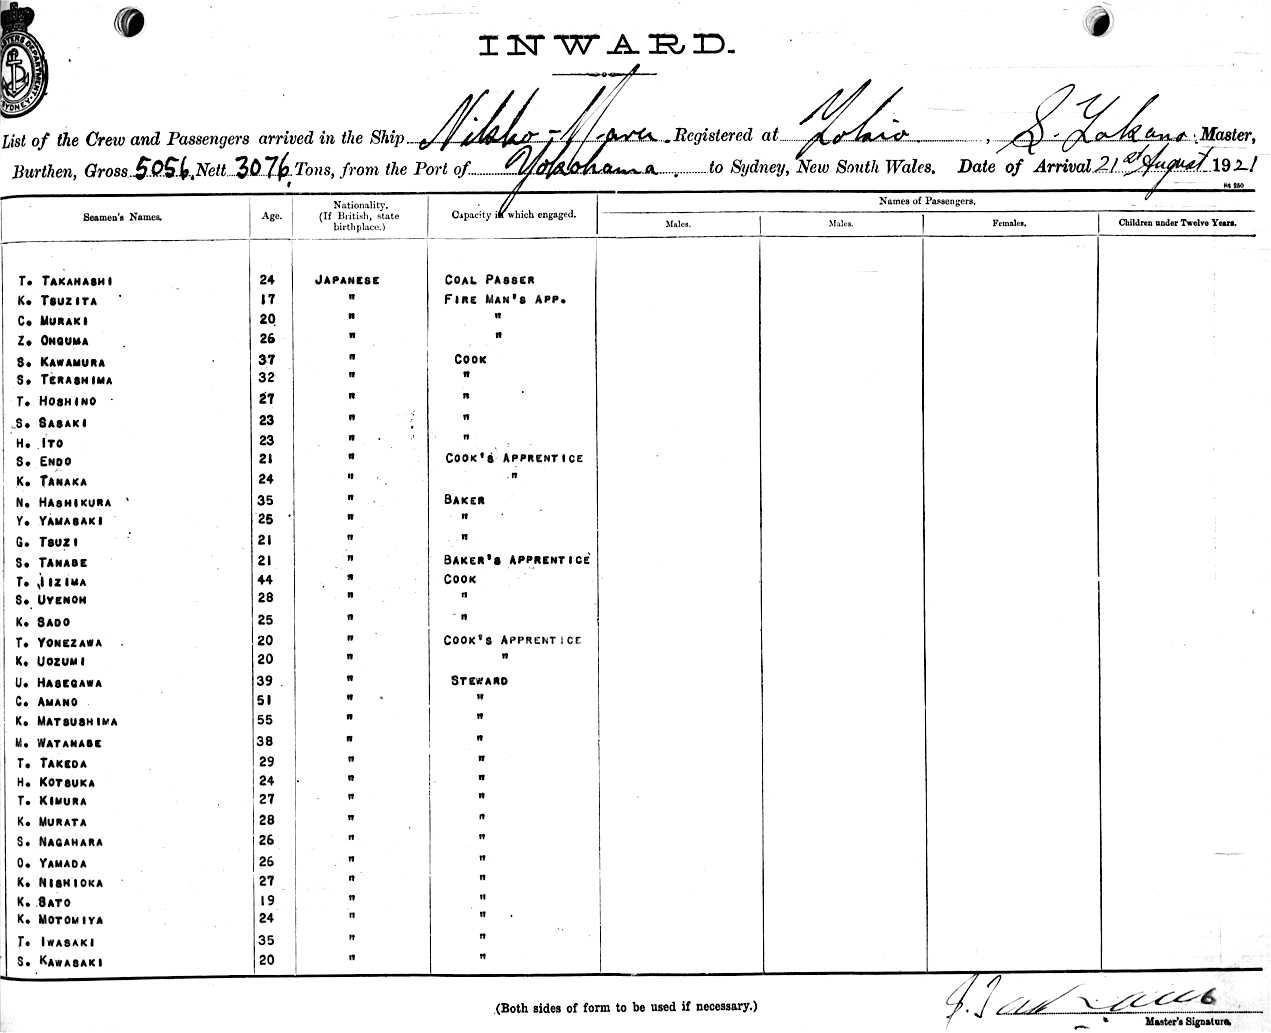 INWARD.
List of the Crew and Passengers arrived in the Ship Nikko-Maru Registered at Tokio, S. Takano Master,
Burthen, Gross 5056, Nett 3076, Tons, from the Port of Yokohama. to Sydney, New South Wales. Date of Arrival 21st August 1921
Seamen's Names. Age. Nationality. (If British, state birthplace.) Capacity in which engaged. Names of Passengers.
Males. Males. Females. Children under Twelve Years.
T. TAKAHASHI 24 JAPANESE COAL PASSER
K. TSUZITA 17 " FIRE MAN'S APP.
C. MURAKI 20 " "
Z. ONGUMA 26 " "
S. KAWAMURA 37 " COOK
S. TERASHIMA 32 " "
T. HOSHINO 27 " "
S. SASAKI 23 " "
H. ITO 23 " "
S. ENDO 21 " COOK'S APPRENTICE
K. TANAKA 24 " "
N. HASHIKURA 35 " BAKER
Y. YAMASAKI 25 " "
G. TSUZI 21 " "
S. TANABE 21 " BAKER'S APPRENTICE
T. IIZIMA 44 " COOK
S. UYENOH 28 " "
K. SADO 25 " "
T. YONEZAWA 20 " COOK'S APPRENTICE
K. UOZUMI 20 " "
U. HASEGAWA 39 " STEWARD
C. AMANO 51 " "
K. MATSUSHIMA 55 " "
M. WATANABE 38 " "
T. TAKEDA 29 " "
H. KOTSUKA 24 " "
T. KIMURA 27 " "
K. MURATA 28 " "
S. NAGAHARA 26 " "
O. YAMADA 26 " "
K. NISHIOKA 27 " "
K. SATO 19 " "
K. MOTOMIYA 24 " "
T. IWASAKI 35 " "
S. KAWASAKI 20 " "
(Both sides of form to be used if necessary.)
Master's Signature.